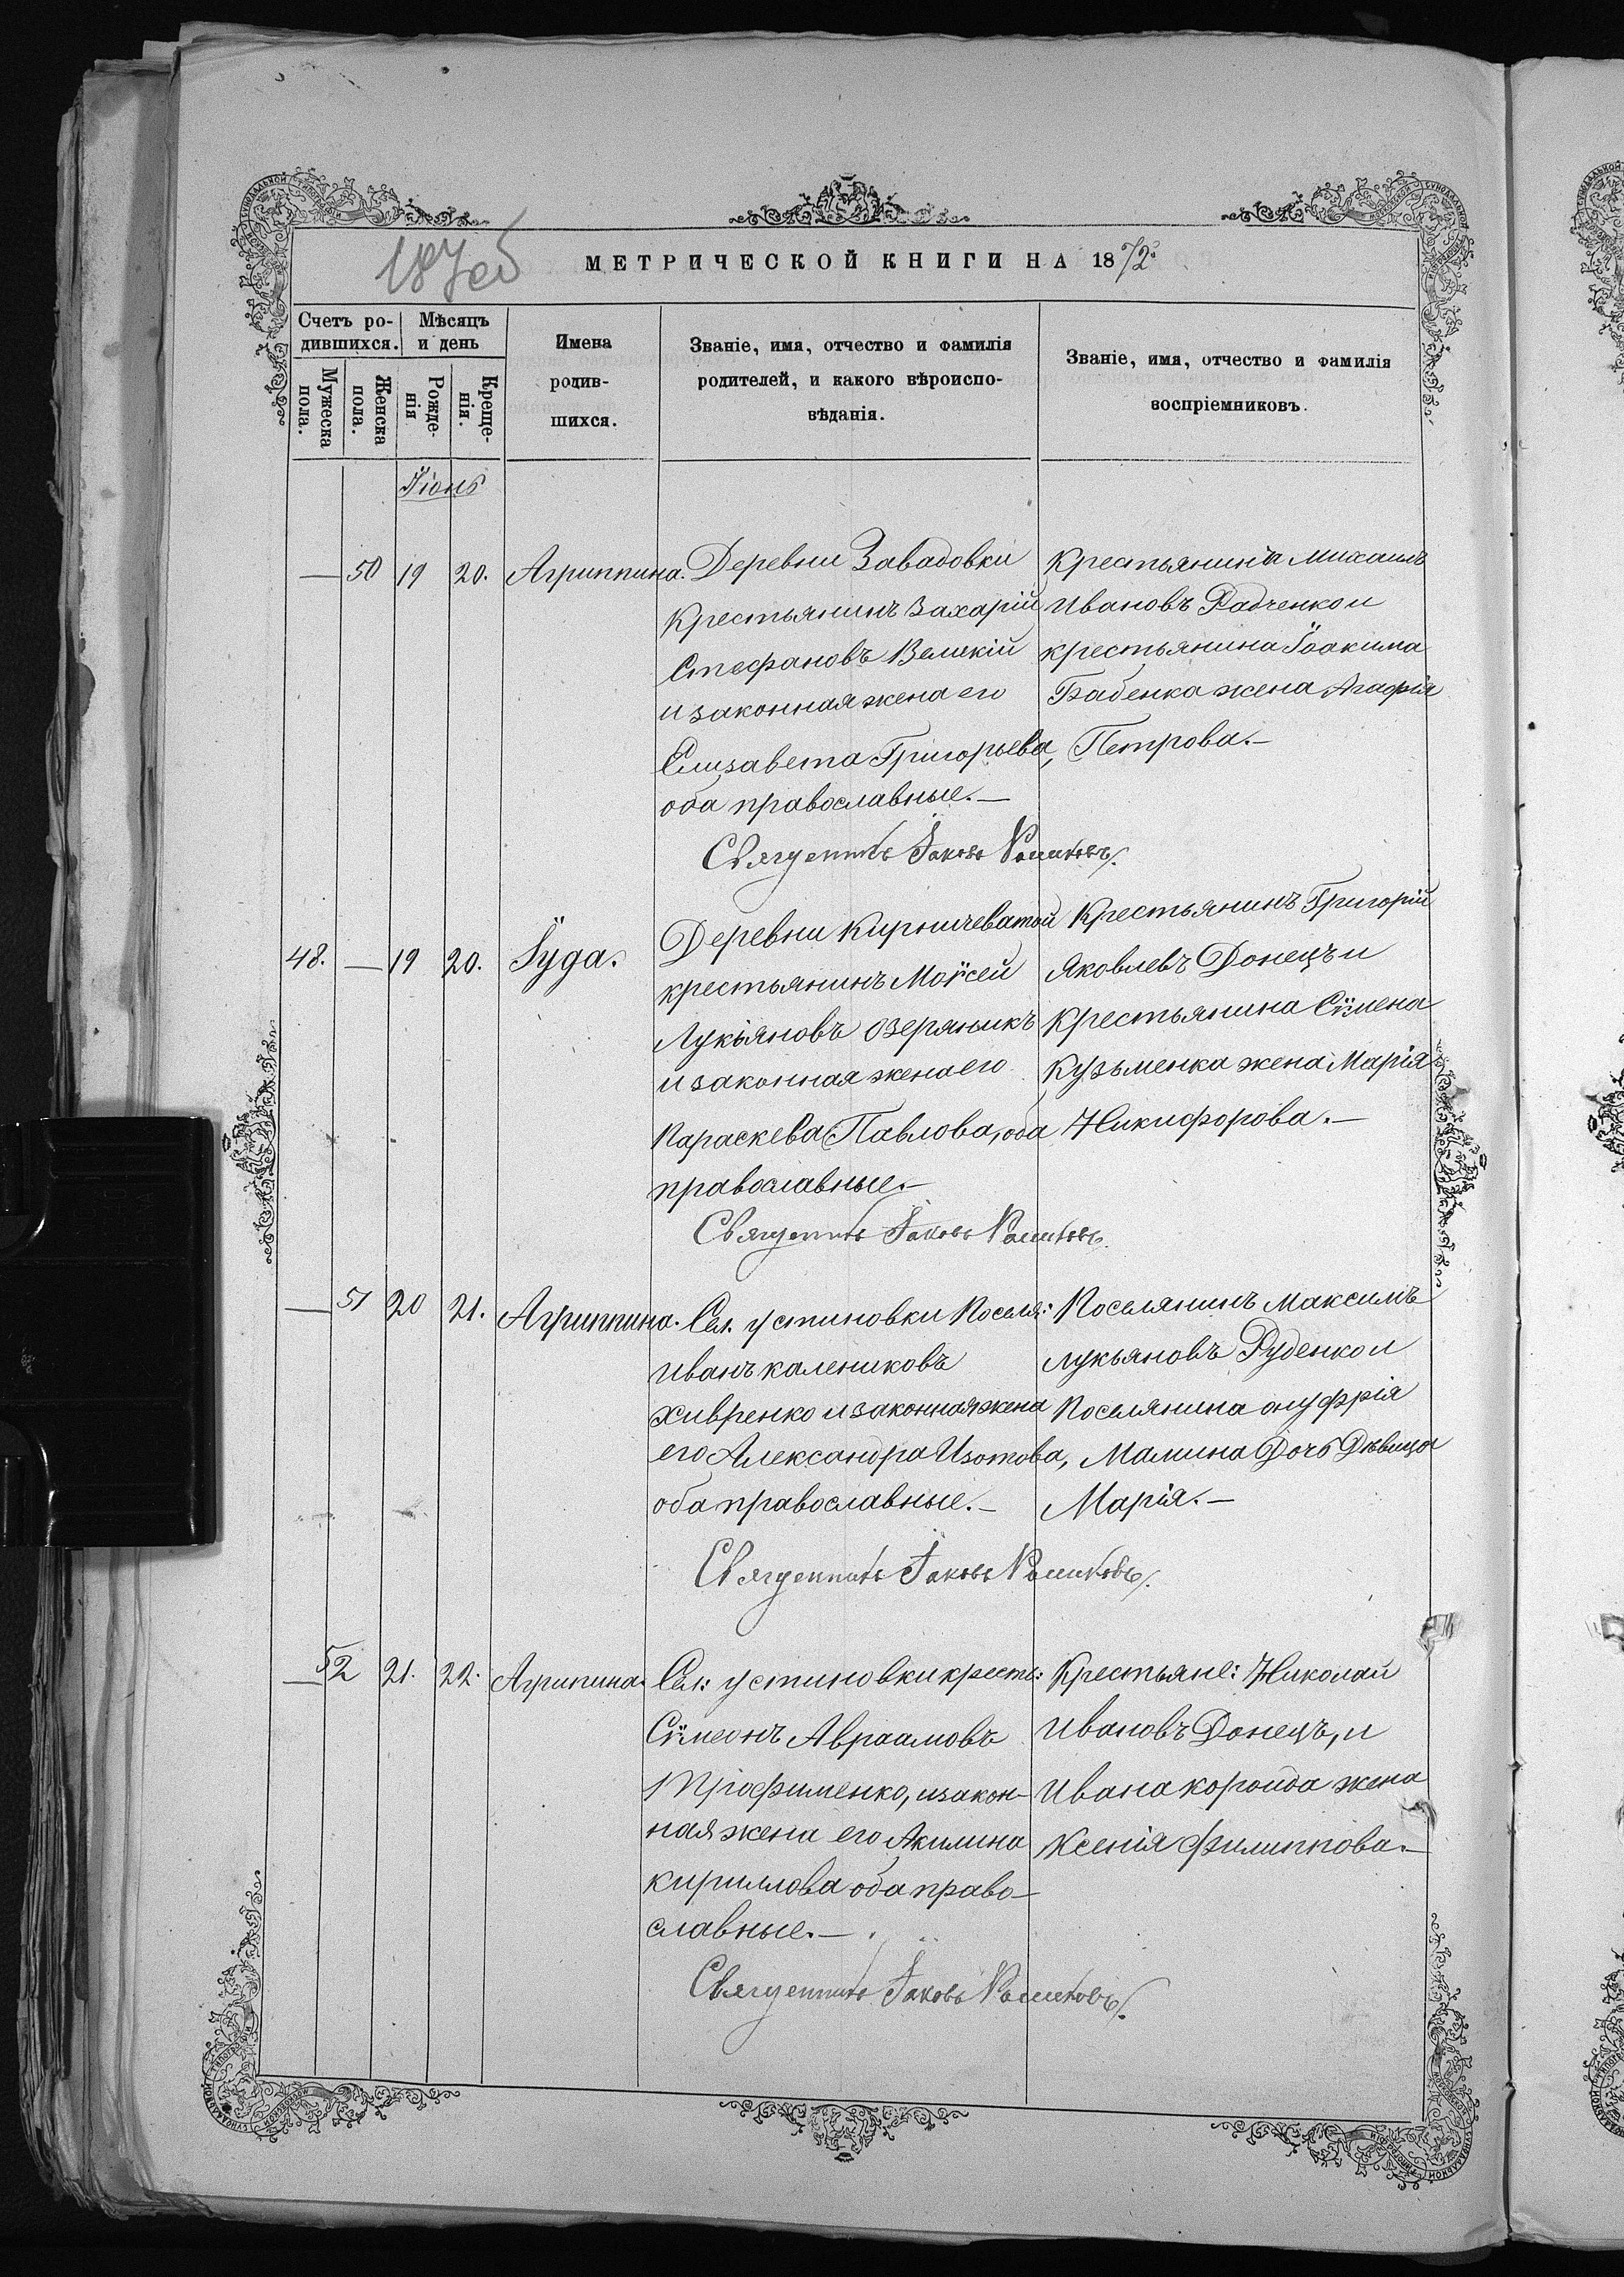 МЕТРИЧЕСКОЙ КНИГИ НА 1872
187об
Счетъ ро-
дившихся.
Мѣсяцъ
и день
Имена
родив-
шихся.
Званіе, имя, отчество и фамилія
родителей, и какого вѣроиспо-
вѣданія.
Званіе, имя, отчество и фамилія
воспріемниковъ.
Мужеска
пола.
Женска
пола.
Рожде-
нія
Креще-
нія.
Іюнь
— 50 19 20. Агриппина.
Деревни Завадовки
Крестьянинъ Захарій
Стефановъ Великій
и законная жена его
Елизавета Григорьева,
оба православные.—
Крестьянинъ Михаилъ
Ивановъ Радченко и
крестьянина Іоакима
Бабенка жена Агафія
Петрова.—
Священникъ Іаковъ
48. — 19 20. Іуда.
Деревни Кирпичеватой
крестьянинъ Моѵсей
Лукіяновъ Озеряникъ
и законная жена его
Параскева Павлова, оба
православные.—
Крестьянинъ Григорій
Яковлевъ Донецъ и
Крестьянина Сѵмена
Кузьменка жена Марія
Никифорова.—
Священникъ Іаковъ
— 51 20 21. Агриппина.
Сел. Устиновки Поселя:
Иванъ Калениковъ
Хивренко и законная жена
его Александра Изотова,
оба православные.—
Поселянинъ Максимъ
Лукьяновъ Руденко и
Поселянина Онуфрія
Малина Дочь Дѣвица
Марія.—
Священникъ Іаковъ
— 52 21. 22. Агрипина.
Сел: Устиновки кресть:
Сѵмеонъ Авраамовъ
Трофименко, и закон-
ная жена его Акилина
Кириллова оба право-
славные.—
Крестьяне: Николай
Ивановъ Донецъ, и
Ивана Короида жена
Ксенія Филиппова.—
Священникъ Іаковъ